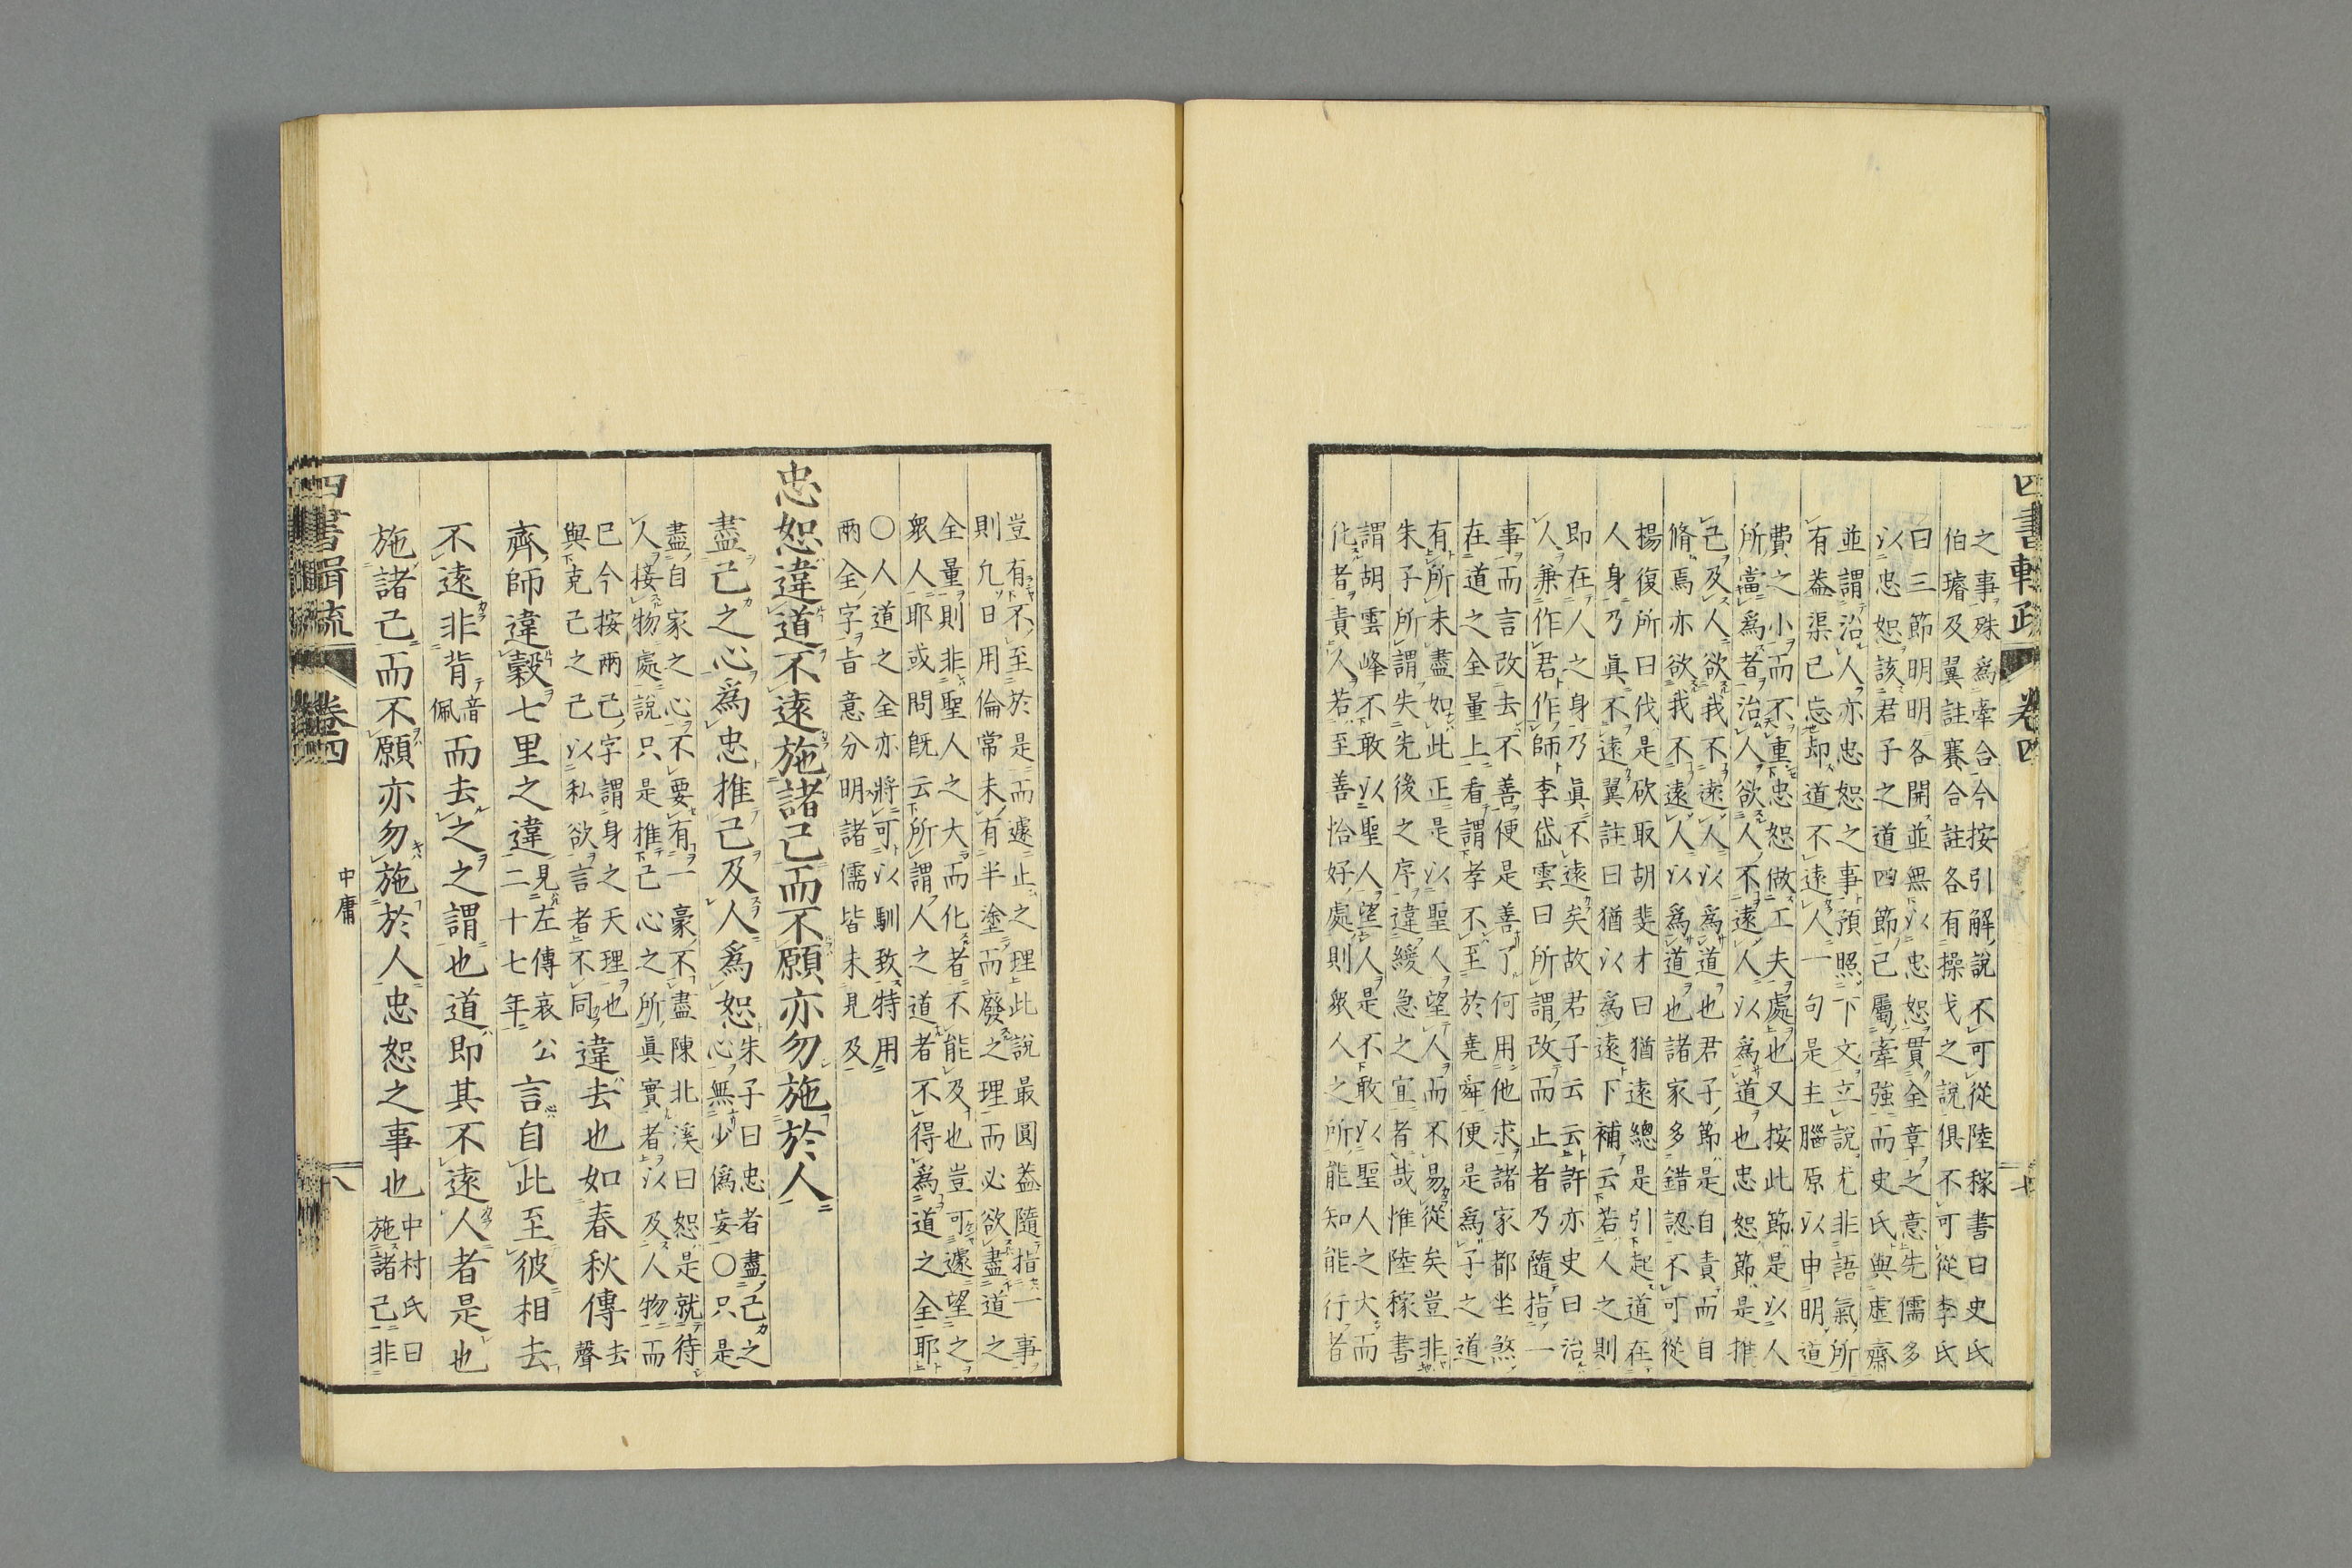 四書輯疏 卷四 十七
之事殊爲牽合今按引解說不可從陸稼書曰史氏
伯璿及翼註賽合註各有操戈之說俱不可從李氏
曰三節明明各開並無以忠恕貫全章之意先儒多
以忠恕該君子之道四節己屬牽強而史氏與虛齋
並謂治人亦忠恕之事預照下文立說尤非語氣所
有葢渠已忘却道不遠人一句是主腦原以申明道
費之小而不重忠恕做工夫處也又按此節是以人
所當爲者治人欲人不遠人以爲道也忠恕節是推
己及人欲我不遠人以爲道也君子節是自責而自
脩焉亦欲我不遠人以爲道也諸家多錯認不可從
楊復所曰伐是砍取胡斐才曰猶遠總是引起道在
人身乃眞不遠翼註曰猶以爲遠下補云若人之則
即在人之身乃眞不遠矣故君子云云許亦史曰治
人兼作君作師李岱雲曰所謂改而止者乃隨指一
事而言改去不善便是善了何用他求諸家都坐煞
在道之全量上看謂孝不至於堯舜便是爲子之道
有所未盡如此正是以聖人望人而不易從矣豈非
朱子所謂失先後之序違緩急之宜者哉惟陸稼書
謂胡雲峰不敢以聖人望人是不敢以聖人之大而
化者責人若至善恰好處則衆人之所能知能行者
豈有不至於是而遽止之理此說最圓葢隨指一事
則凡日用倫常未有半塗而廢之理而必欲盡道之
全量則非聖人之大而化者不能及也豈可遽望之
衆人耶或問旣云所謂人之道者不得爲道之全耶
〇人道之全亦將可以馴致特用
兩全字旨意分明諸儒皆未見及
忠恕違道不遠施諸己而不願亦勿施於人
盡己之心爲忠推己及人爲恕朱子曰忠者盡己之
心無少僞妄〇只是
盡自家之心不要有一豪不盡陳北溪曰恕是就待
人接物處說只是推己心之所眞實者以及人物而
已今按兩己字謂身之天理也
與克己之己以私欲言者不同違去也如春秋傳去
聲
齊師違穀七里之違見左傳哀公
二十七年言自此至彼相去
不遠非背音
佩而去之之謂也道即其不遠人者是也
施諸己而不願亦勿施於人忠恕之事也中村氏曰
施諸己非
四書輯疏 卷四 中庸 十八